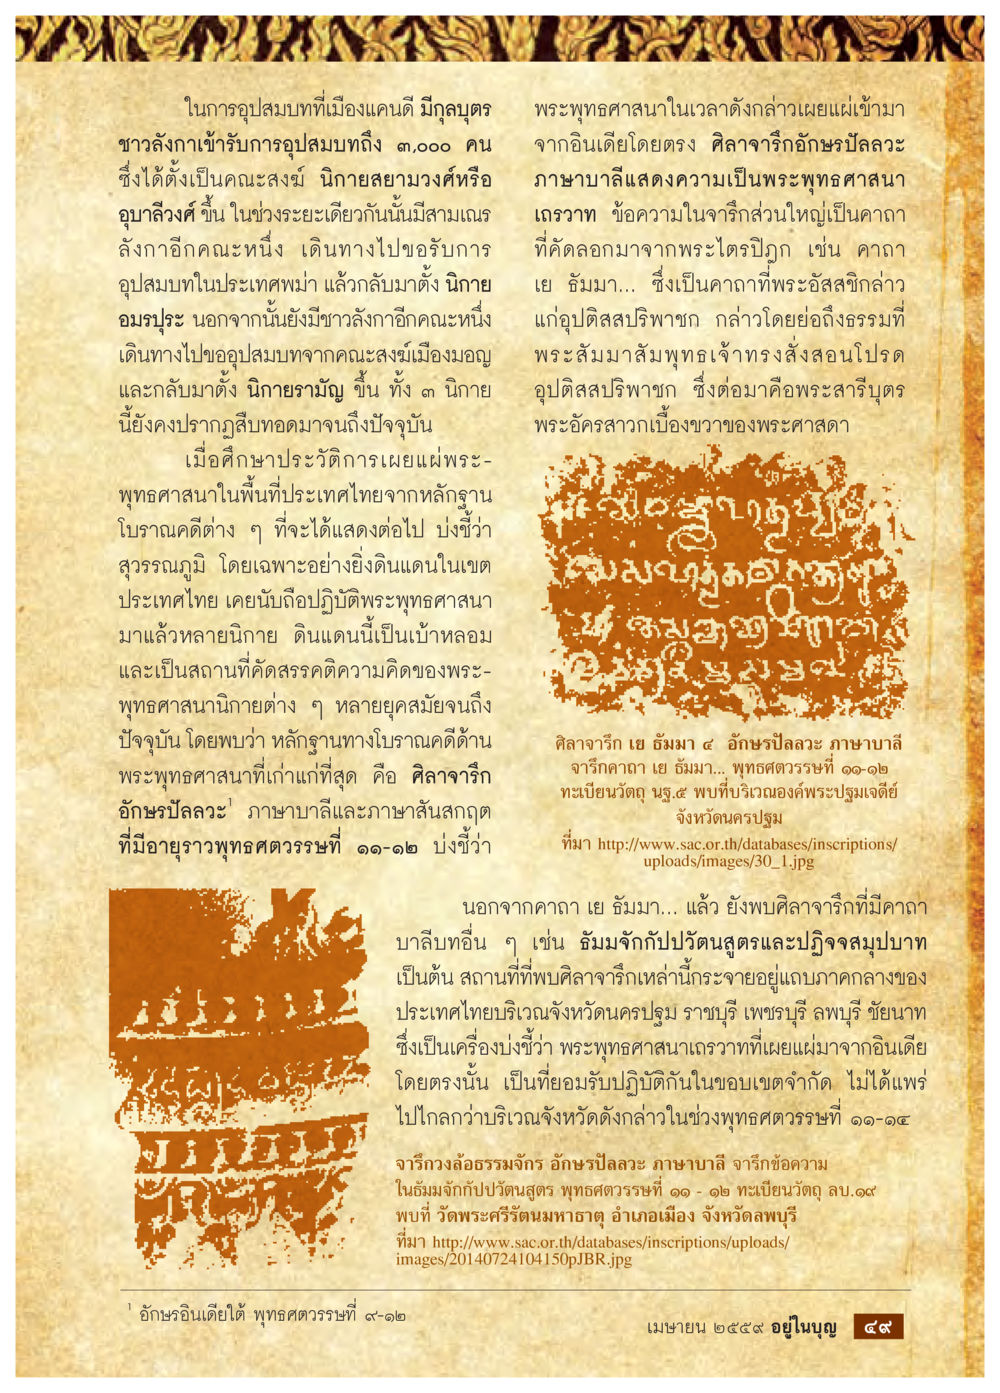 ในการอุปสมบทที่เมืองแคนดี มีกุลบุตร
ชาวลังกาเข้ารับการอุปสมบทถึง ๓,๐๐๐ คน
ซึ่งได้ตั้งเป็นคณะสงฆ์ นิกายสยามวงศ์หรือ
อุบาลีวงศ์ ขึ้น ในช่วงระยะเดียวกันนั้นมีสามเณร
ลังกาอีกคณะหนึ่ง เดินทางไปขอรับการ
อุปสมบทในประเทศพม่า แล้วกลับมาตั้ง นิกาย
อมรปุระ นอกจากนั้นยังมีชาวลังกาอีกคณะหนึ่ง
เดินทางไปขออุปสมบทจากคณะสงฆ์เมืองมอญ
และกลับมาตั้ง นิกายรามัญ ขึ้น ทั้ง ๓ นิกาย
นี้ยังคงปรากฏสืบทอดมาจนถึงปัจจุบัน
เมื่อศึกษาประวัติการเผยแผ่พระ-
พุทธศาสนาในพื้นที่ประเทศไทยจากหลักฐาน
โบราณคดีต่าง ๆ ที่จะได้แสดงต่อไป บ่งชี้ว่า
สุวรรณภูมิ โดยเฉพาะอย่างยิ่งดินแดนในเขต
ประเทศไทย เคยนับถือปฏิบัติพระพุทธศาสนา
มาแล้วหลายนิกาย ดินแดนนี้เป็นเบ้าหลอม
และเป็นสถานที่คัดสรรคติความคิดของพระ-
พุทธศาสนานิกายต่าง ๆ หลายยุคสมัยจนถึง
ปัจจุบัน โดยพบว่า หลักฐานทางโบราณคดีด้าน
พระพุทธศาสนาที่เก่าแก่ที่สุด คือ ศิลาจารึก
อักษรปัลลวะ¹ ภาษาบาลีและภาษาสันสกฤต
ที่มีอายุราวพุทธศตวรรษที่ ๑๑-๑๒ บ่งชี้ว่า
พระพุทธศาสนาในเวลาดังกล่าวเผยแผ่เข้ามา
จากอินเดียโดยตรง ศิลาจารึกอักษรปัลลวะ
ภาษาบาลีแสดงความเป็นพระพุทธศาสนา
เถรวาท ข้อความในจารึกส่วนใหญ่เป็นคาถา
ที่คัดลอกมาจากพระไตรปิฎก เช่น คาถา
เย ธัมมา... ซึ่งเป็นคาถาที่พระอัสสชิกล่าว
แก่อุปติสสปริพาชก กล่าวโดยย่อถึงธรรมที่
พระสัมมาสัมพุทธเจ้าทรงสั่งสอนโปรด
อุปติสสปริพาชก ซึ่งต่อมาคือพระสารีบุตร
พระอัครสาวกเบื้องขวาของพระศาสดา
ศิลาจารึก เย ธัมมา ๔ อักษรปัลลวะ ภาษาบาลี
จารึกคาถา เย ธัมมา... พุทธศตวรรษที่ ๑๑-๑๒
ทะเบียนวัตถุ นฐ.๕ พบที่บริเวณองค์พระปฐมเจดีย์
จังหวัดนครปฐม
ที่มา http://www.sac.or.th/databases/inscriptions/
uploads/images/30_1.jpg
นอกจากคาถา เย ธัมมา... แล้ว ยังพบศิลาจารึกที่มีคาถา
บาลีบทอื่น ๆ เช่น ธัมมจักกัปปวัตนสูตรและปฏิจจสมุปบาท
เป็นต้น สถานที่ที่พบศิลาจารึกเหล่านี้กระจายอยู่แถบภาคกลางของ
ประเทศไทยบริเวณจังหวัดนครปฐม ราชบุรี เพชรบุรี ลพบุรี ชัยนาท
ซึ่งเป็นเครื่องบ่งชี้ว่า พระพุทธศาสนาเถรวาทที่เผยแผ่มาจากอินเดีย
โดยตรงนั้น เป็นที่ยอมรับปฏิบัติกันในขอบเขตจำกัด ไม่ได้แพร่
ไปไกลกว่าบริเวณจังหวัดดังกล่าวในช่วงพุทธศตวรรษที่ ๑๑-๑๔
จารึกวงล้อธรรมจักร อักษรปัลลวะ ภาษาบาลี จารึกข้อความ
ในธัมมจักกัปปวัตนสูตร พุทธศตวรรษที่ ๑๑ - ๑๒ ทะเบียนวัตถุ ลบ.๑๙
พบที่ วัดพระศรีรัตนมหาธาตุ อำเภอเมือง จังหวัดลพบุรี
ที่มา http://www.sac.or.th/databases/inscriptions/uploads/
images/20140724104150pJBR.jpg
¹ อักษรอินเดียใต้ พุทธศตวรรษที่ ๙-๑๒
เมษายน ๒๕๕๙ อยู่ในบุญ ๔๙